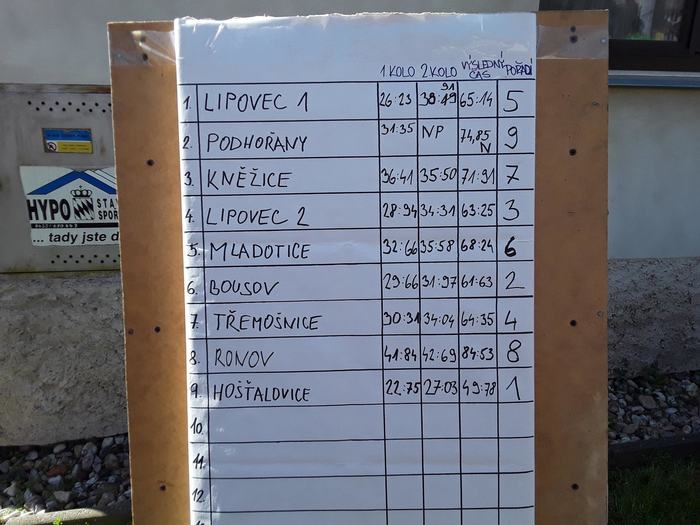 1 KOLO 2 KOLO VÝSLEDNÝ ČAS POŘADÍ
1. LIPOVEC 1 26:23 65:14 5
2. PODHOŘANY 31:35 NP 74,85 N 9
3. KNĚŽICE 36:41 35:50 71:91 7
4. LIPOVEC 2 28:94 34:31 63:25 3
5. MLADOTICE 32:66 35:58 68:24 6
6. BOUSOV 29:66 31:97 61:63 2
7. TŘEMOŠNICE 30:31 34:04 64:35 4
8. RONOV 41:84 42:69 84:53 8
9. HOŠŤALOVICE 22:75 27:03 49:78 1
10.
11.
12.
HYPO STA
SPOŘ
... tady jste d